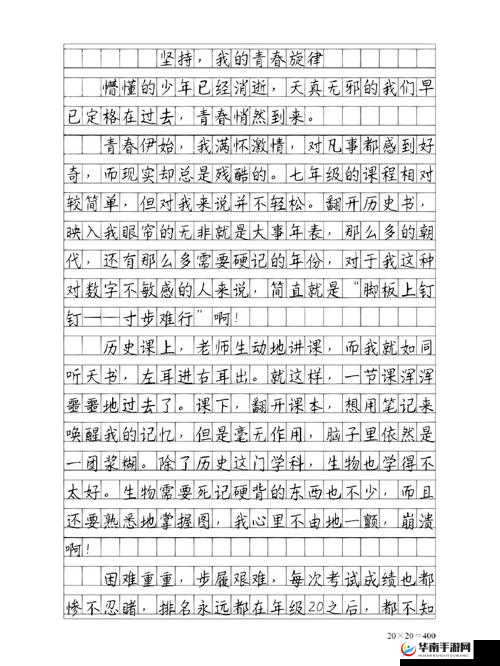 坚持，我的青春旋律
懵懂的少年已经消逝，天真无邪的我们早
已定格在过去，青春悄然到来。
青春伊始，我满怀激情，对凡事都感到好
奇，而现实却总是残酷的。七年级的课程相对
较简单，但对我来说并不轻松。翻开历史书，
映入我眼帘的无非就是大事年表，那么多的朝
代，还有那么多需要硬记的年份，对于我这种
对数字不敏感的人来说，简直就是“脚板上钉
钉——寸步难行”啊！
历史课上，老师生动地讲课，而我就如同
听天书，左耳进右耳出。就这样，一节课浑浑
噩噩地过去了。课下，翻开课本，想用笔记来
唤醒我的记忆，但是毫无作用，脑子里依然是
一团浆糊。除了历史这门学科，生物也学得不
太好。生物需要死记硬背的东西也不少，而且
还要熟悉地掌握图，我心里不由地一颤，崩溃
啊！
困难重重，步履艰难，每次考试成绩也都
惨不忍睹，排名永远都在年级20之后，都不知
20×20=400
华南手游网